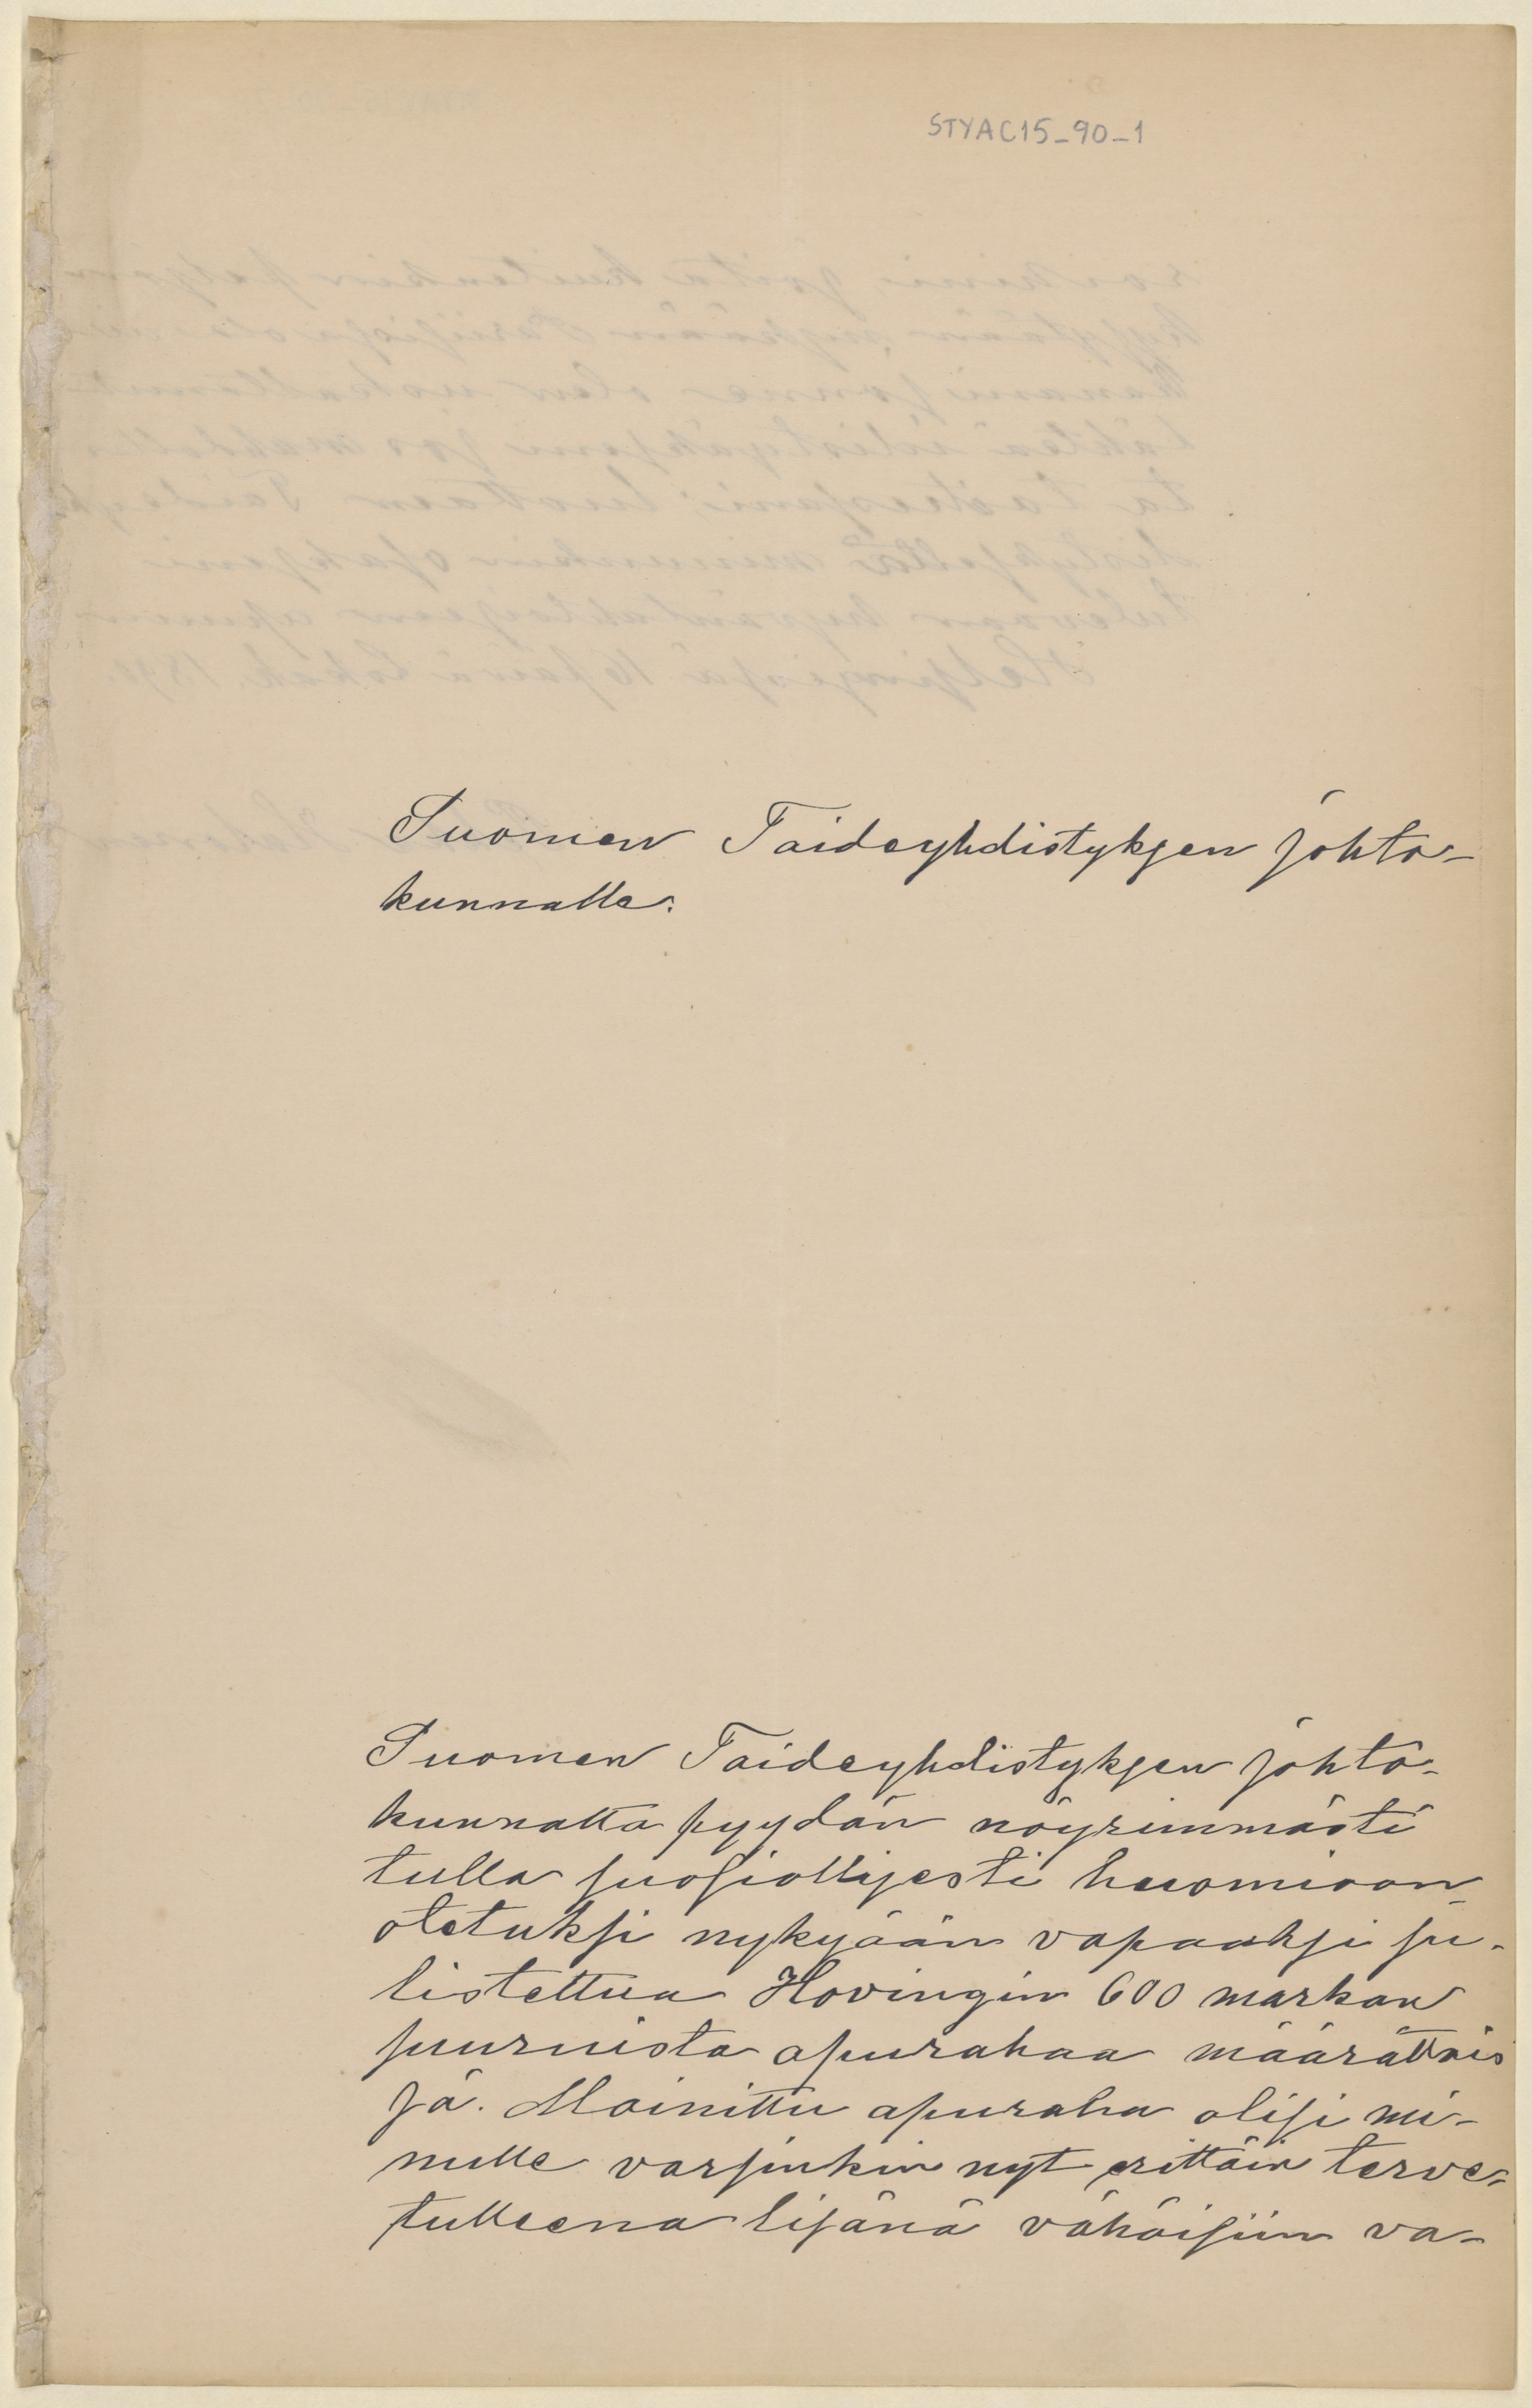 STYAC15_90_1
Suomen Taideyhdistyksen johto-
kunnalle.
Suomen Taideyhdistyksen johto-
kunnalta pyydän nöyrimmästi
tulla suosiollisesti huomioon
otetuksi nykyään vapaaksi ju-
listettua Hovingin 600 markan
suuruista apurahaa määrättäis
sä. Mainittu apuraha olisi mi-
nulle varsinkin nyt erittäin terve-
tulleena lisänä vähäisiin va-